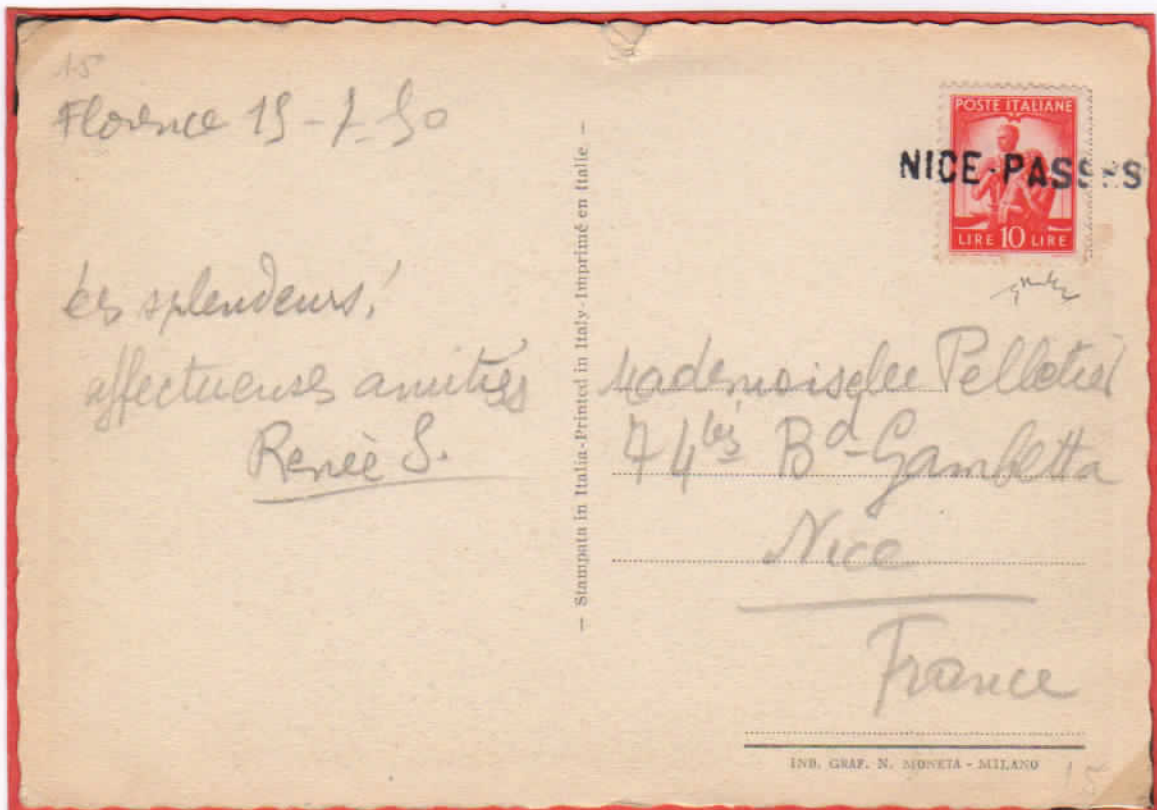 15
Florence 15-7-50
les splendeurs,
affectueuses amitiés
Renée S.
— Stampata in Italia-Printed in Italy-Imprimé en Italie —
POSTE ITALIANE
NICE-PASS
LIRE 10 LIRE
Mademoiselle Pelletier
74 bis Bd Gambetta
Nice
France
IND. GRAF. N. MONETA - MILANO
15